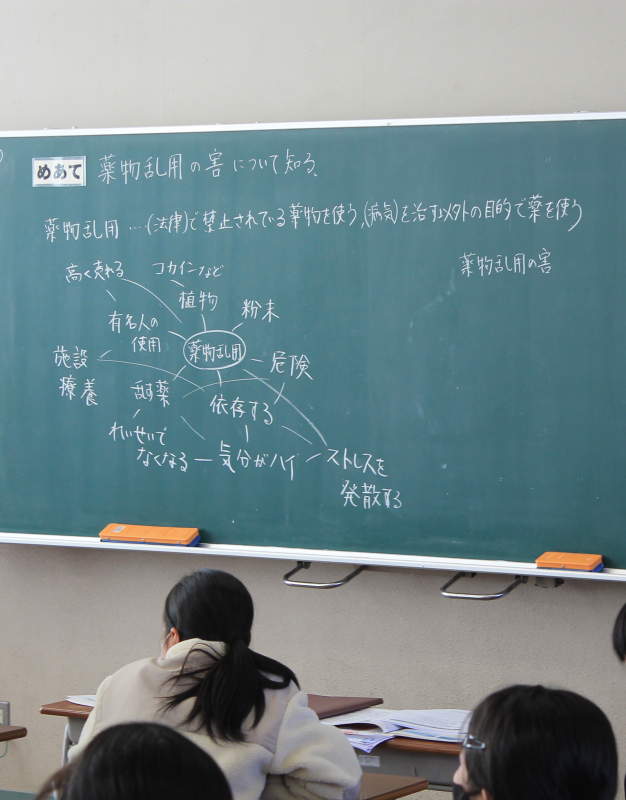 めあて 薬物乱用の害について知る。
薬物乱用…(法律)で禁止されている薬物を使う、(病気)を治す以外の目的で薬を使う
薬物乱用の害
高く売れる
コカインなど
植物
粉末
有名人の
使用
薬物乱用
危険
施設
療養
依存する
れいせいで
なくなる
気分がハイ
ストレスを
発散する